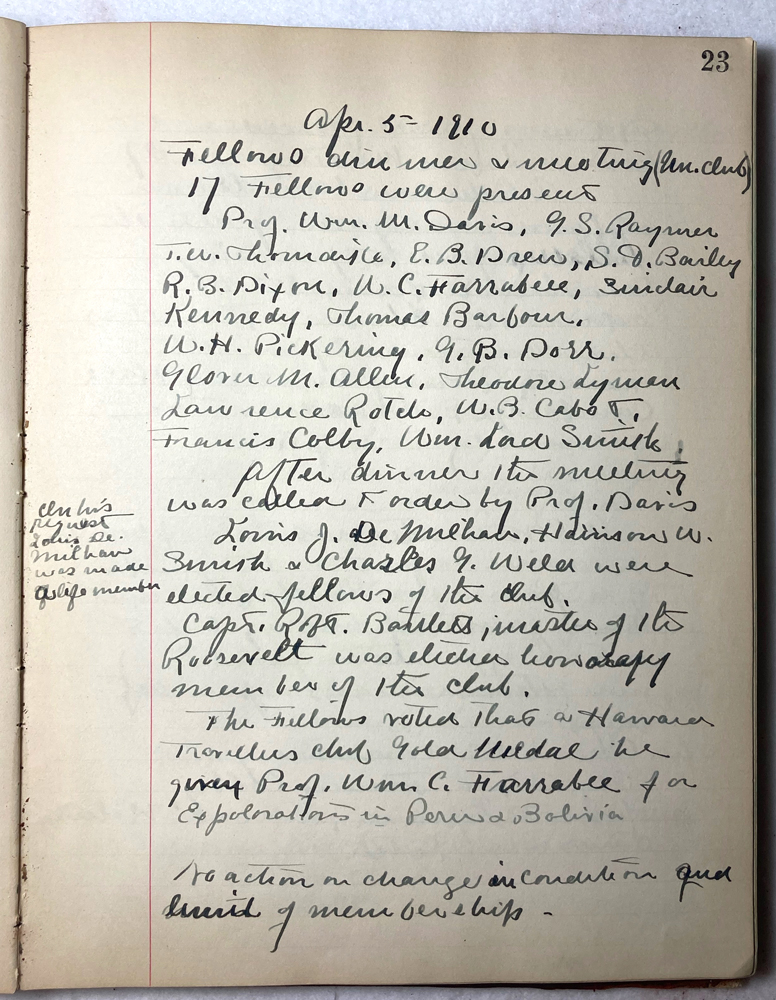 23
Apr. 5 - 1910
Fellows dinner & meeting (Un. club)
17 Fellows were present
Prof. Wm. M. Davis, G. S. Raymer
T. W. Thorndike, E. B. Drew, S. D. Bailey
R. B. Dixon, W. C. Farrabee, Sinclair
Kennedy, Thomas Barbour,
W. H. Pickering, G. B. Dorr,
Glover M. Allen, Theodore Lyman
Lawrence Rotch, W. B. Cabot,
Francis Colby, Wm. Lord Smith.
After dinner the meeting
was called to order by Prof. Davis
Louis J. De Milhau, Harrison W.
Smith & Charles G. Weld were
elected fellows of the club.
At his
request
Louis De.
Milhau
was made
a life member
Capt. Robt. Bartlett, master of the
Roosevelt was elected honorary
member of the club.
The Fellows voted that a Harvard
Travellers club Gold Medal be
given Prof. Wm C. Farrabee for
Explorations in Peru & Bolivia
No action on change in condition and
limit of membership -